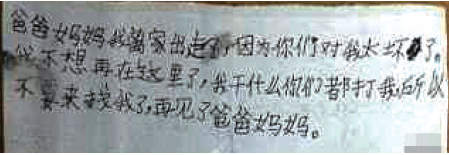 爸爸妈妈我离家出走了,因为你们对我太坏了。
我不想再在这里了,我干什么你们都打我,所以
不要来找我了,再见了爸爸妈妈。